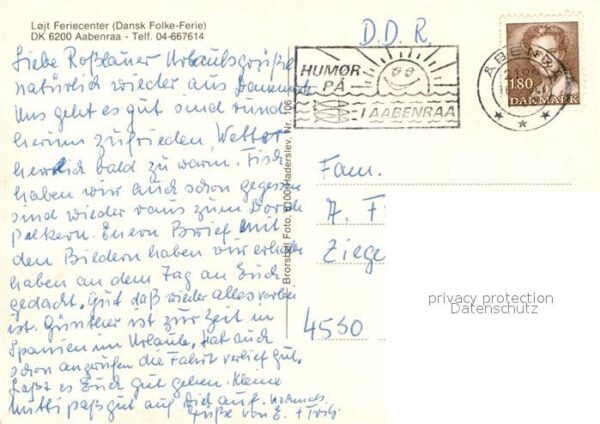 Løjt Feriecenter (Dansk Folke-Ferie)
DK 6200 Aabenraa - Telf. 04-667614
Liebe Roßlauer Urlaubsgrüße
natürlich wieder aus Dänemark
Uns geht es gut sind rund
herum zufrieden. Wetter
herrlich bald zu warm. Fisch
haben wir auch schon gegessen
sind wieder raus zum Dorsch
pilkern. Euern Brief mit
den Bildern haben wir erhalten
haben an dem Tag an Euch
gedacht. Gut daß wieder alles vorbei
ist. Günther ist zur Zeit in
Spanien im Urlaub. Hat auch
schon angerufen die Fahrt verlief gut.
Laßt es Euch gut gehen. Kleine
Mutti paß gut auf Dich auf. Nochmals
Grüße von E. + Fritz
Brorsbøl Foto, 6100 Haderslev, Nr. 106
D.D.R.
HUMØR
PÅ
I AABENRAA
ÅBENRÅ
180
DANMARK
Fam.
A. F
Ziege
4530
privacy protection
Datenschutz